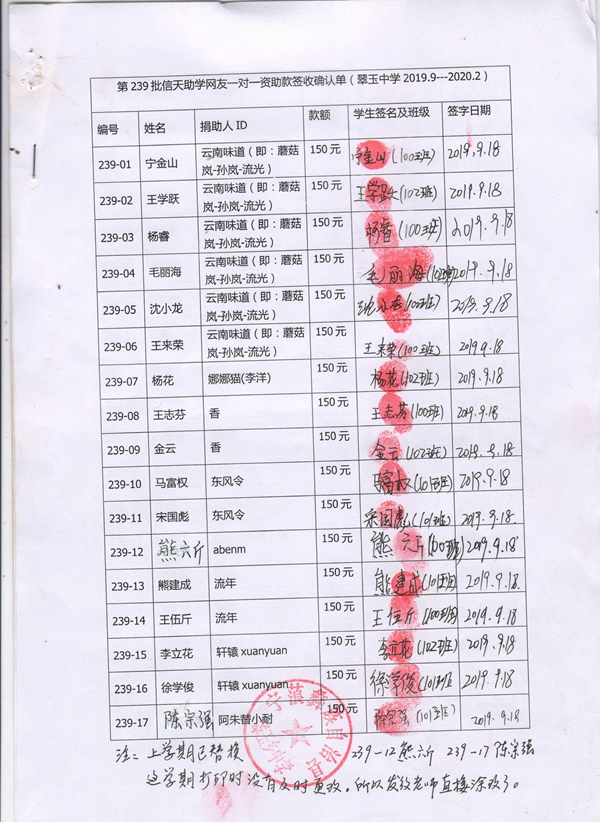 第239批信天助学网友一对一资助款签收确认单（翠玉中学2019.9---2020.2）
编号 姓名 捐助人ID 款额 学生签名及班级 签字日期
239-01 宁金山 云南味道（即：蘑菇岚-孙岚-流光） 150元 宁金山(100班) 2019.9.18
239-02 王学跃 云南味道（即：蘑菇岚-孙岚-流光） 150元 王学跃(102班) 2019.9.18
239-03 杨睿 云南味道（即：蘑菇岚-孙岚-流光） 150元 杨睿(100班) 2019.9.18
239-04 毛丽海 云南味道（即：蘑菇岚-孙岚-流光） 150元 毛丽海(102班) 2019.9.18
239-05 沈小龙 云南味道（即：蘑菇岚-孙岚-流光） 150元 沈小龙(102班) 2019.9.18
239-06 王来荣 云南味道（即：蘑菇岚-孙岚-流光） 150元 王来荣(100班) 2019.9.18
239-07 杨花 娜娜猫(李洋) 150元 杨花(102班) 2019.9.18
239-08 王志芬 香 150元 王志芬(100班) 2019.9.18
239-09 金云 香 150元 金云(102班) 2019.9.18
239-10 马富权 东风令 150元 富权(101班) 2019.9.18
239-11 宋国彪 东风令 150元 宋国彪(101班) 2019.9.18
239-12 熊六斤 abenm 150元 熊六斤(100班) 2019.9.18
239-13 熊建成 流年 150元 熊建成(101班) 2019.9.18
239-14 王伍斤 流年 150元 王伍斤(100班) 2019.9.18
239-15 李立花 轩辕xuanyuan 150元 李立花(102班) 2019.9.18
239-16 徐学俊 轩辕xuanyuan 150元 徐学俊(101班) 2019.9.18
239-17 陈宗强 阿朱替小耐 150元 陈宗强(101班) 2019.9.18
宁蒗彝族自治县
注：上学期已替换 239-12熊六斤 239-17陈宗强
这学期打印时没有及时更改。所以发放老师直接涂改了。